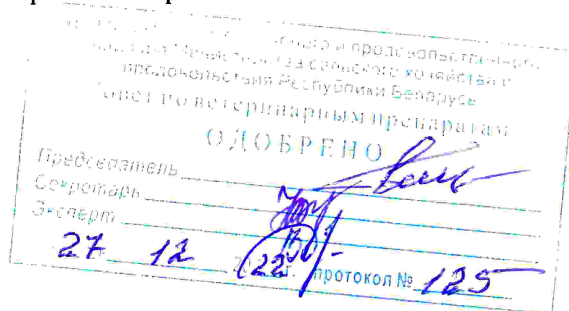 и продовольственного
Министерства сельского хозяйства и
продовольствия Республики Беларусь
Совет по ветеринарным препаратам
ОДОБРЕНО
Председатель
Секретарь
Эксперт
27 12 22 г. протокол № 125